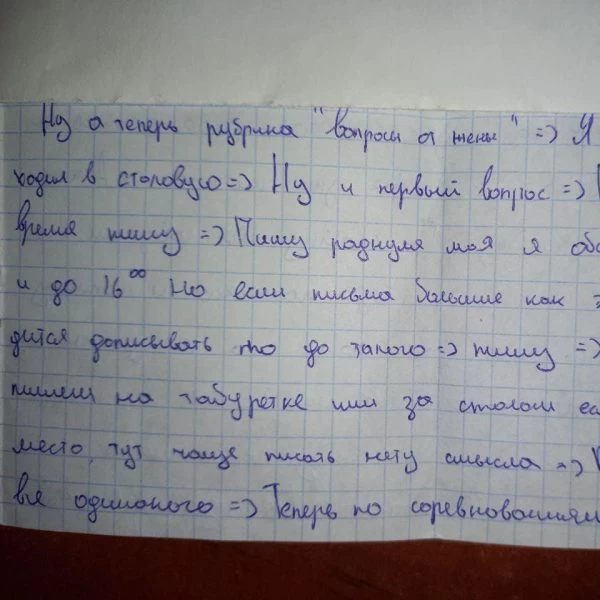 Ну а теперь рубрика "вопросы от жены" => Я
ходил в столовую => Ну и первый вопрос =>
время пишу => Пишу роднуля моя я
и до 16⁰⁰ Но если письма больше как
дится дописывать то до => пишу =>
пишем на табуретке или за столом
место, тут чаще писать нету смысла =>
все одинаково => Теперь по соревнованиям